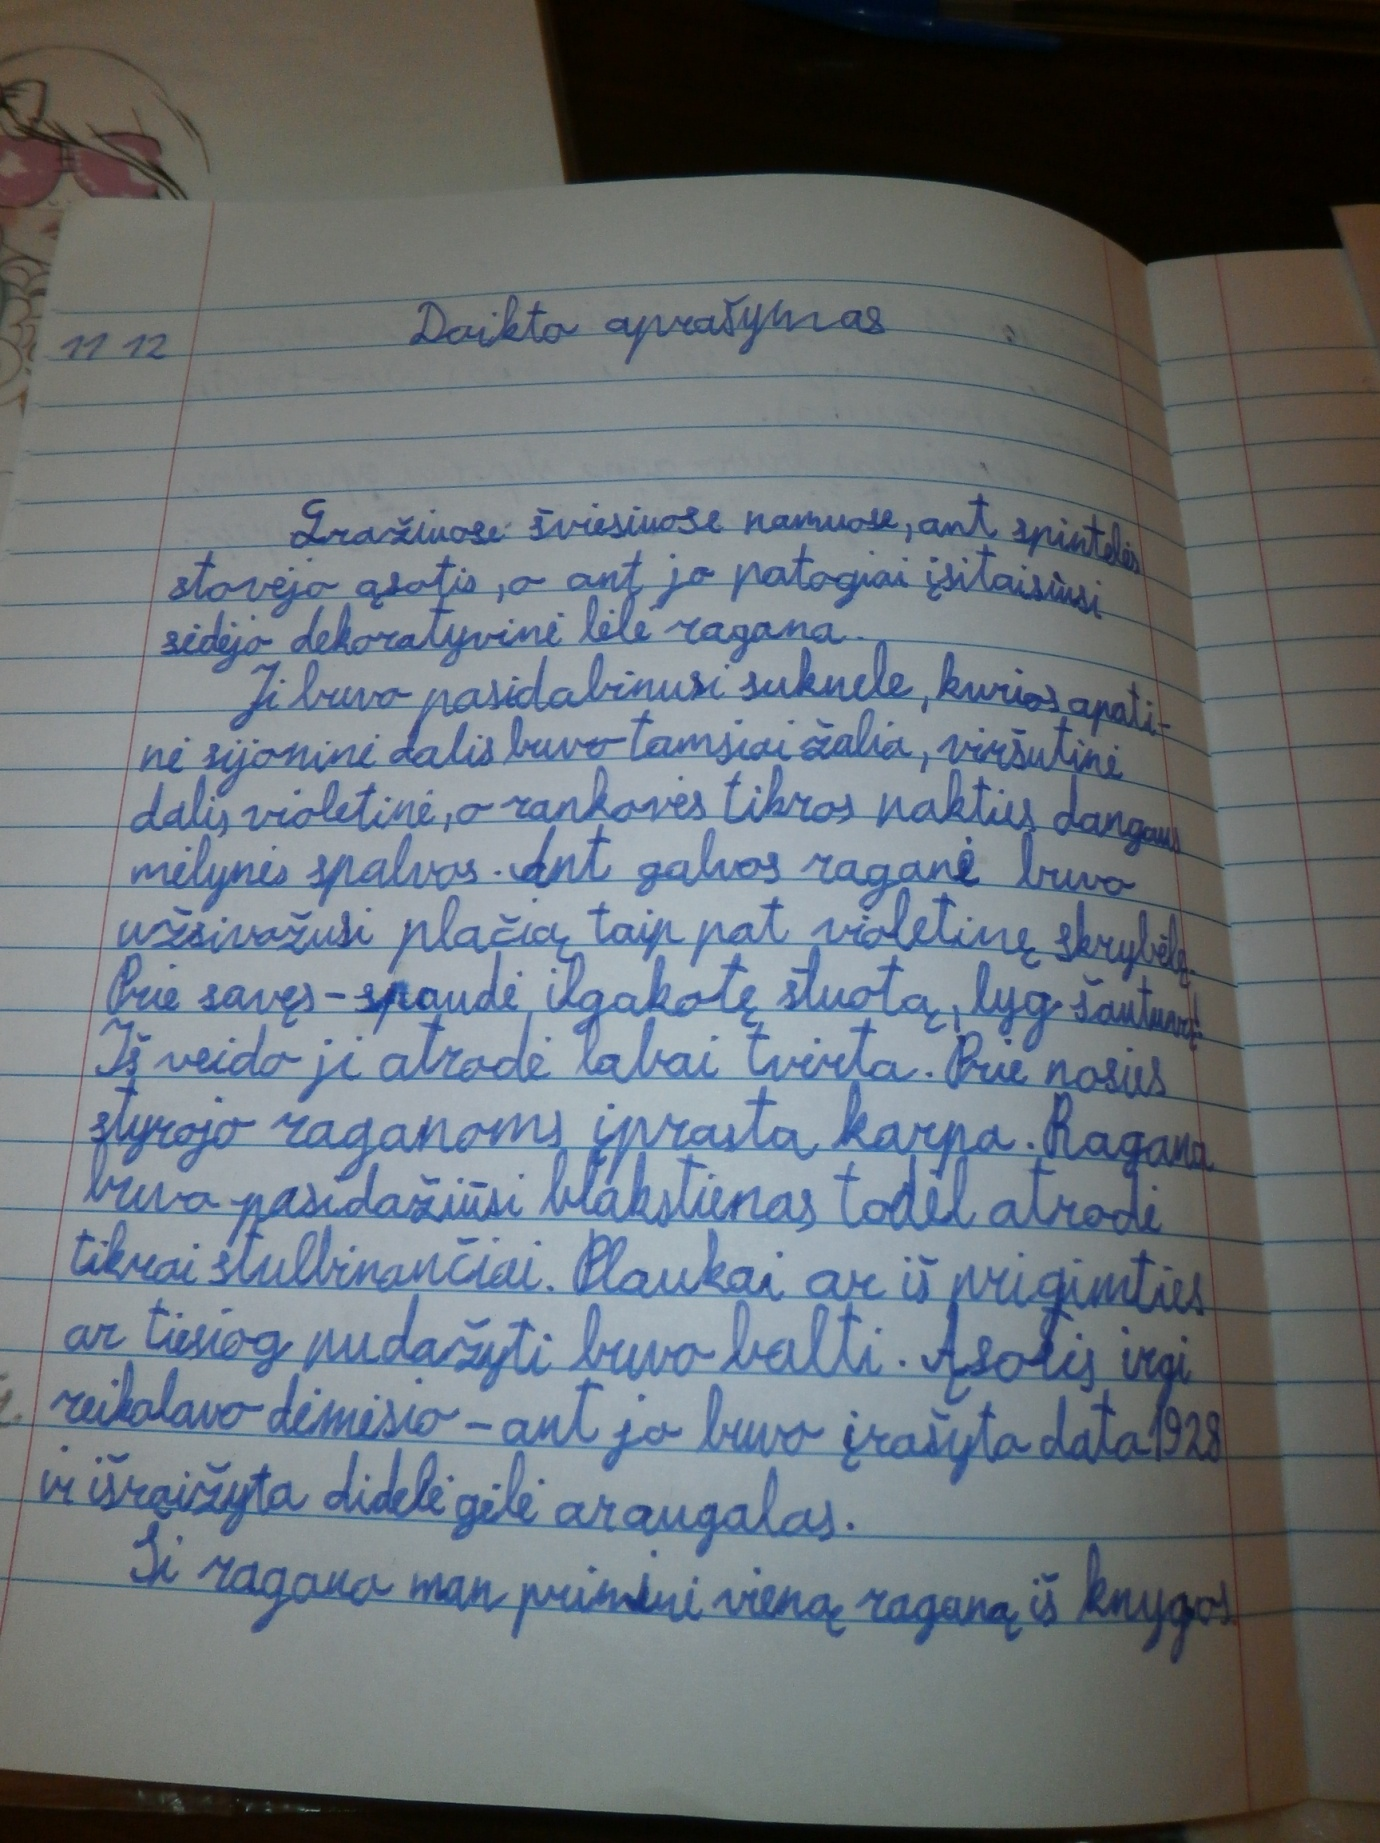 Daikto aprašymas
11 12
Gražiuose šviesiuose namuose, ant spintelės
stovėjo ąsotis, o ant jo patogiai įsitaisiusi
sėdėjo dekoratyvinė lėlė ragana.
Ji buvo pasidabinusi suknele, kurios apati-
nė sijoninė dalis buvo tamsiai žalia, viršutinė
dalis violetinė, o rankovės tikros nakties dangaus
mėlynės spalvos. Ant galvos raganė buvo
užsivožusi plačią taip pat violetinę skrybėlę.
Prie savęs - spaudė ilgakotę šluotą, lyg šautuvą!
Iš veido ji atrodė labai tvirta. Prie nosies
styrojo raganoms įprasta karpa. Ragana
buvo pasidažiusi blakstienas todėl atrodė
tikrai stulbinančiai. Plaukai ar iš prigimties
ar tiesiog nudažyti buvo balti. Ąsotis irgi
reikalavo dėmesio - ant jo buvo įrašyta data 1928
ir išraižyta didelė gėlė ar augalas.
Ši ragana man priminė vieną raganą iš knygos.